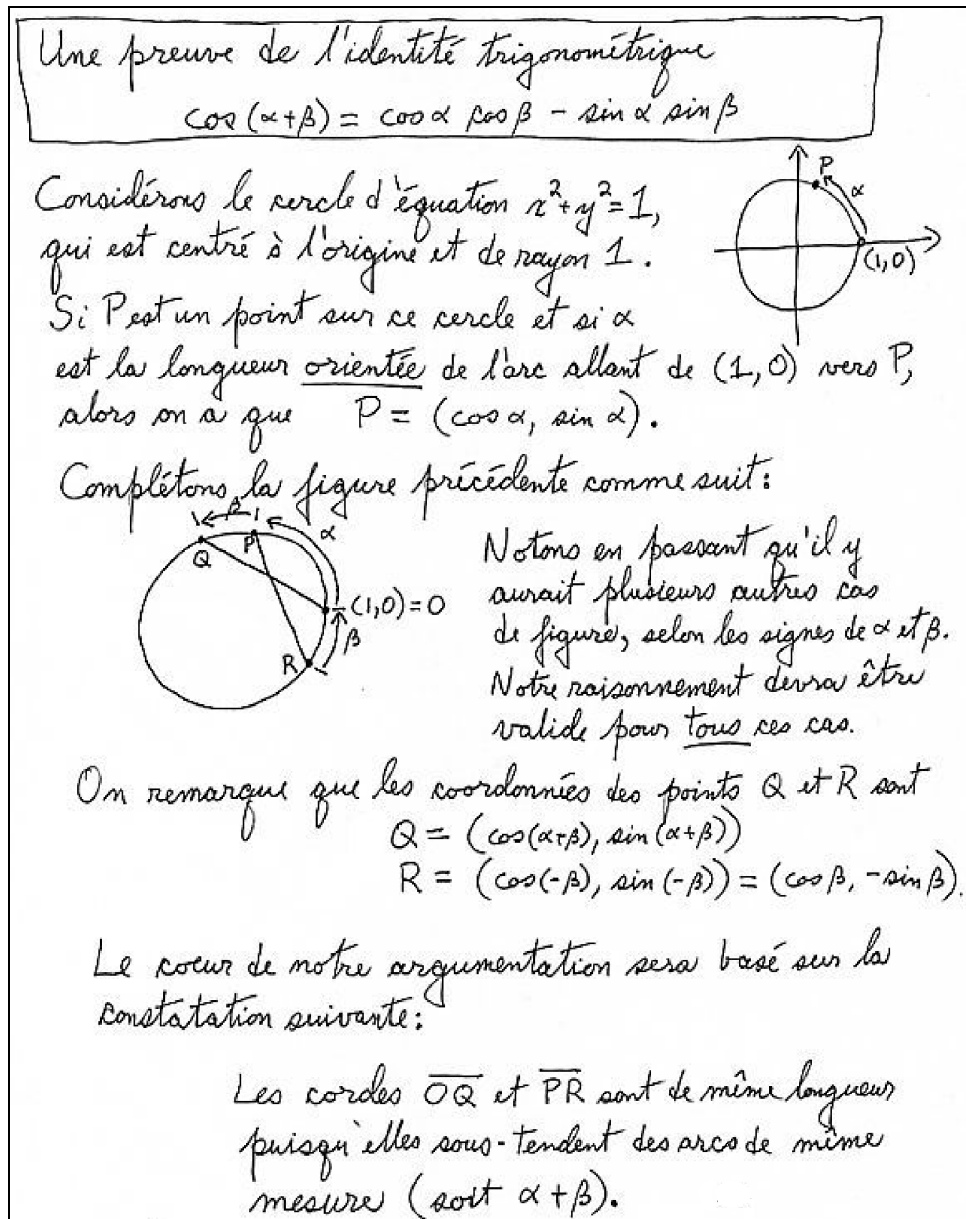 Une preuve de l'identité trigonométrique
cos (α+β) = cos α cos β - sin α sin β
Considérons le cercle d'équation x²+y²=1,
qui est centré à l'origine et de rayon 1.
P
α
(1,0)
Si P est un point sur ce cercle et si α
est la longueur orientée de l'arc allant de (1,0) vers P,
alors on a que P = (cos α, sin α).
Complétons la figure précédente comme suit:
β
α
Q
P
(1,0)=O
β
R
Notons en passant qu'il y
aurait plusieurs autres cas
de figure, selon les signes de α et β.
Notre raisonnement devra être
valide pour tous ces cas.
On remarque que les coordonnées des points Q et R sont
Q = (cos(α+β), sin(α+β))
R = (cos(-β), sin(-β)) = (cos β, -sin β).
Le coeur de notre argumentation sera basé sur la
constatation suivante:
Les cordes O̅Q̅ et P̅R̅ sont de même longueur
puisqu'elles sous-tendent des arcs de même
mesure (soit α+β).